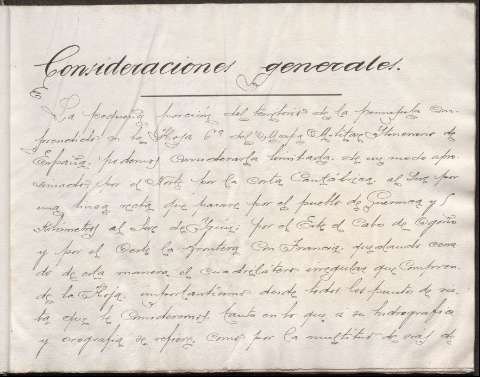 Consideraciones generales.
La pequeña porción del territorio de la peninsula com-
prendida en la Hoja 6ª del Mapa Militar Itinerario de
España, podemos considerarla limitada de un modo apro-
ximado, por el Norte por la costa Cantábrica, al Sur por
una linea recta que pasase por el pueblo de Guernica y 5
Kilometros al Sur de por el Este el Cabo de
y por el Oeste la frontera con Francia, quedando cerra-
do de esta manera el cuadrilatero irregular que compren-
de la Hoja, importantisimo desde todos los puntos de vis-
ta que le consideremos, tanto en lo que a su hidrografia
y orografia se refiere, como por la multitud de vias de